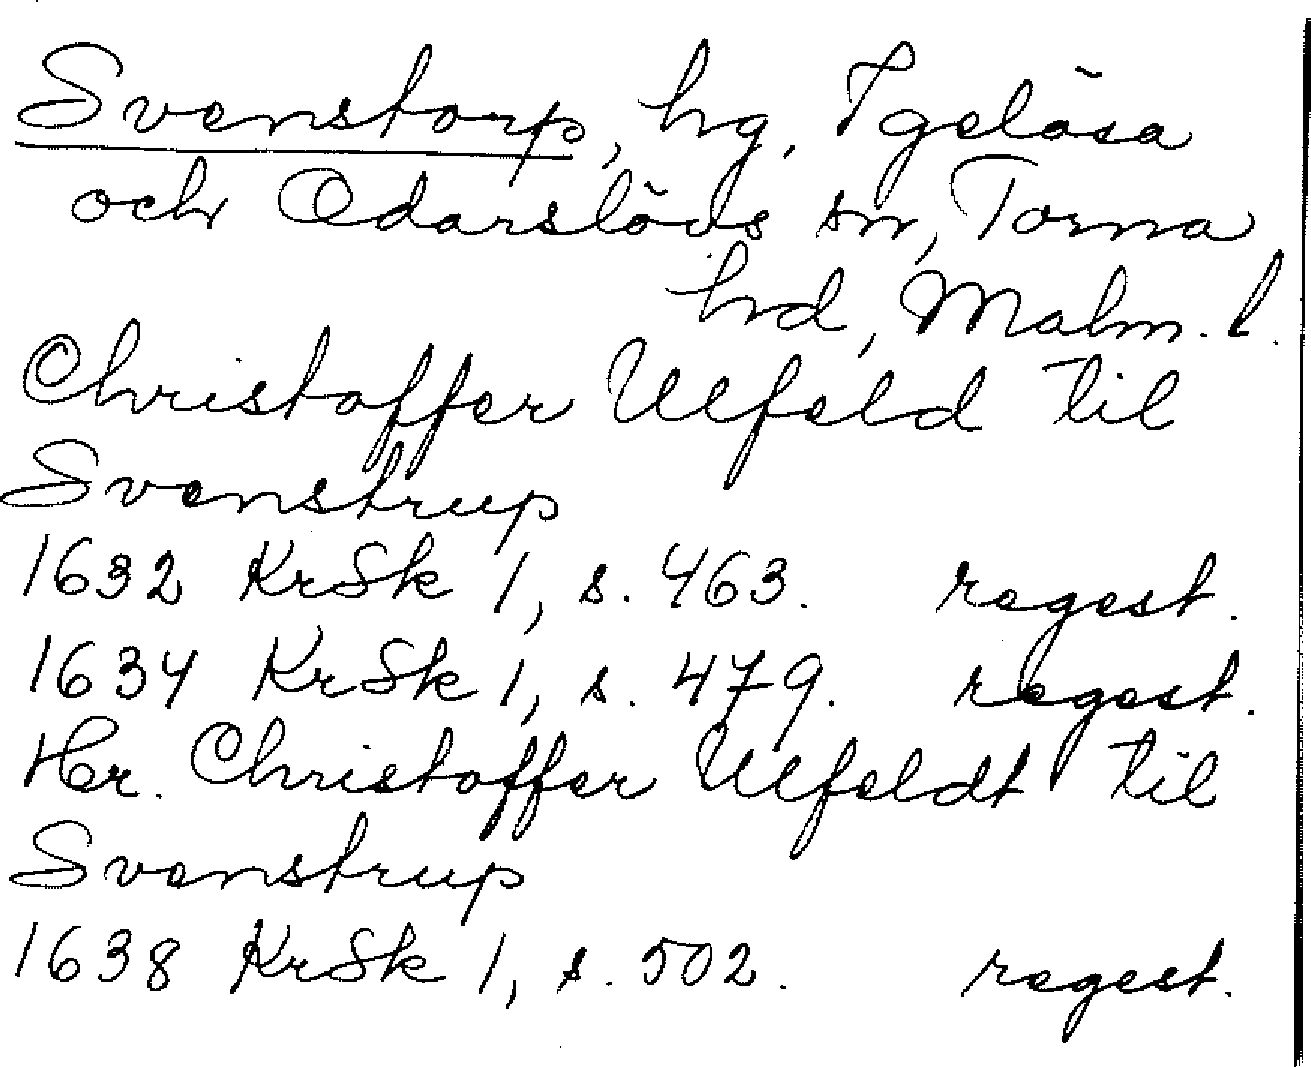 Svenstorp, hg, Igelösa
och Odarslövs sn, Torna
hd, Malm. l.
Christoffer Ulfeld til
Svenstrup
1632 KrSk 1, s. 463. regest.
1634 KrSk 1, s. 479. regest.
Her. Christoffer Ulfeldt til
Svenstrup
1638 KrSk 1, s. 502. regest.